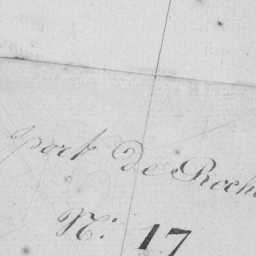 port de Roch
N.° 17